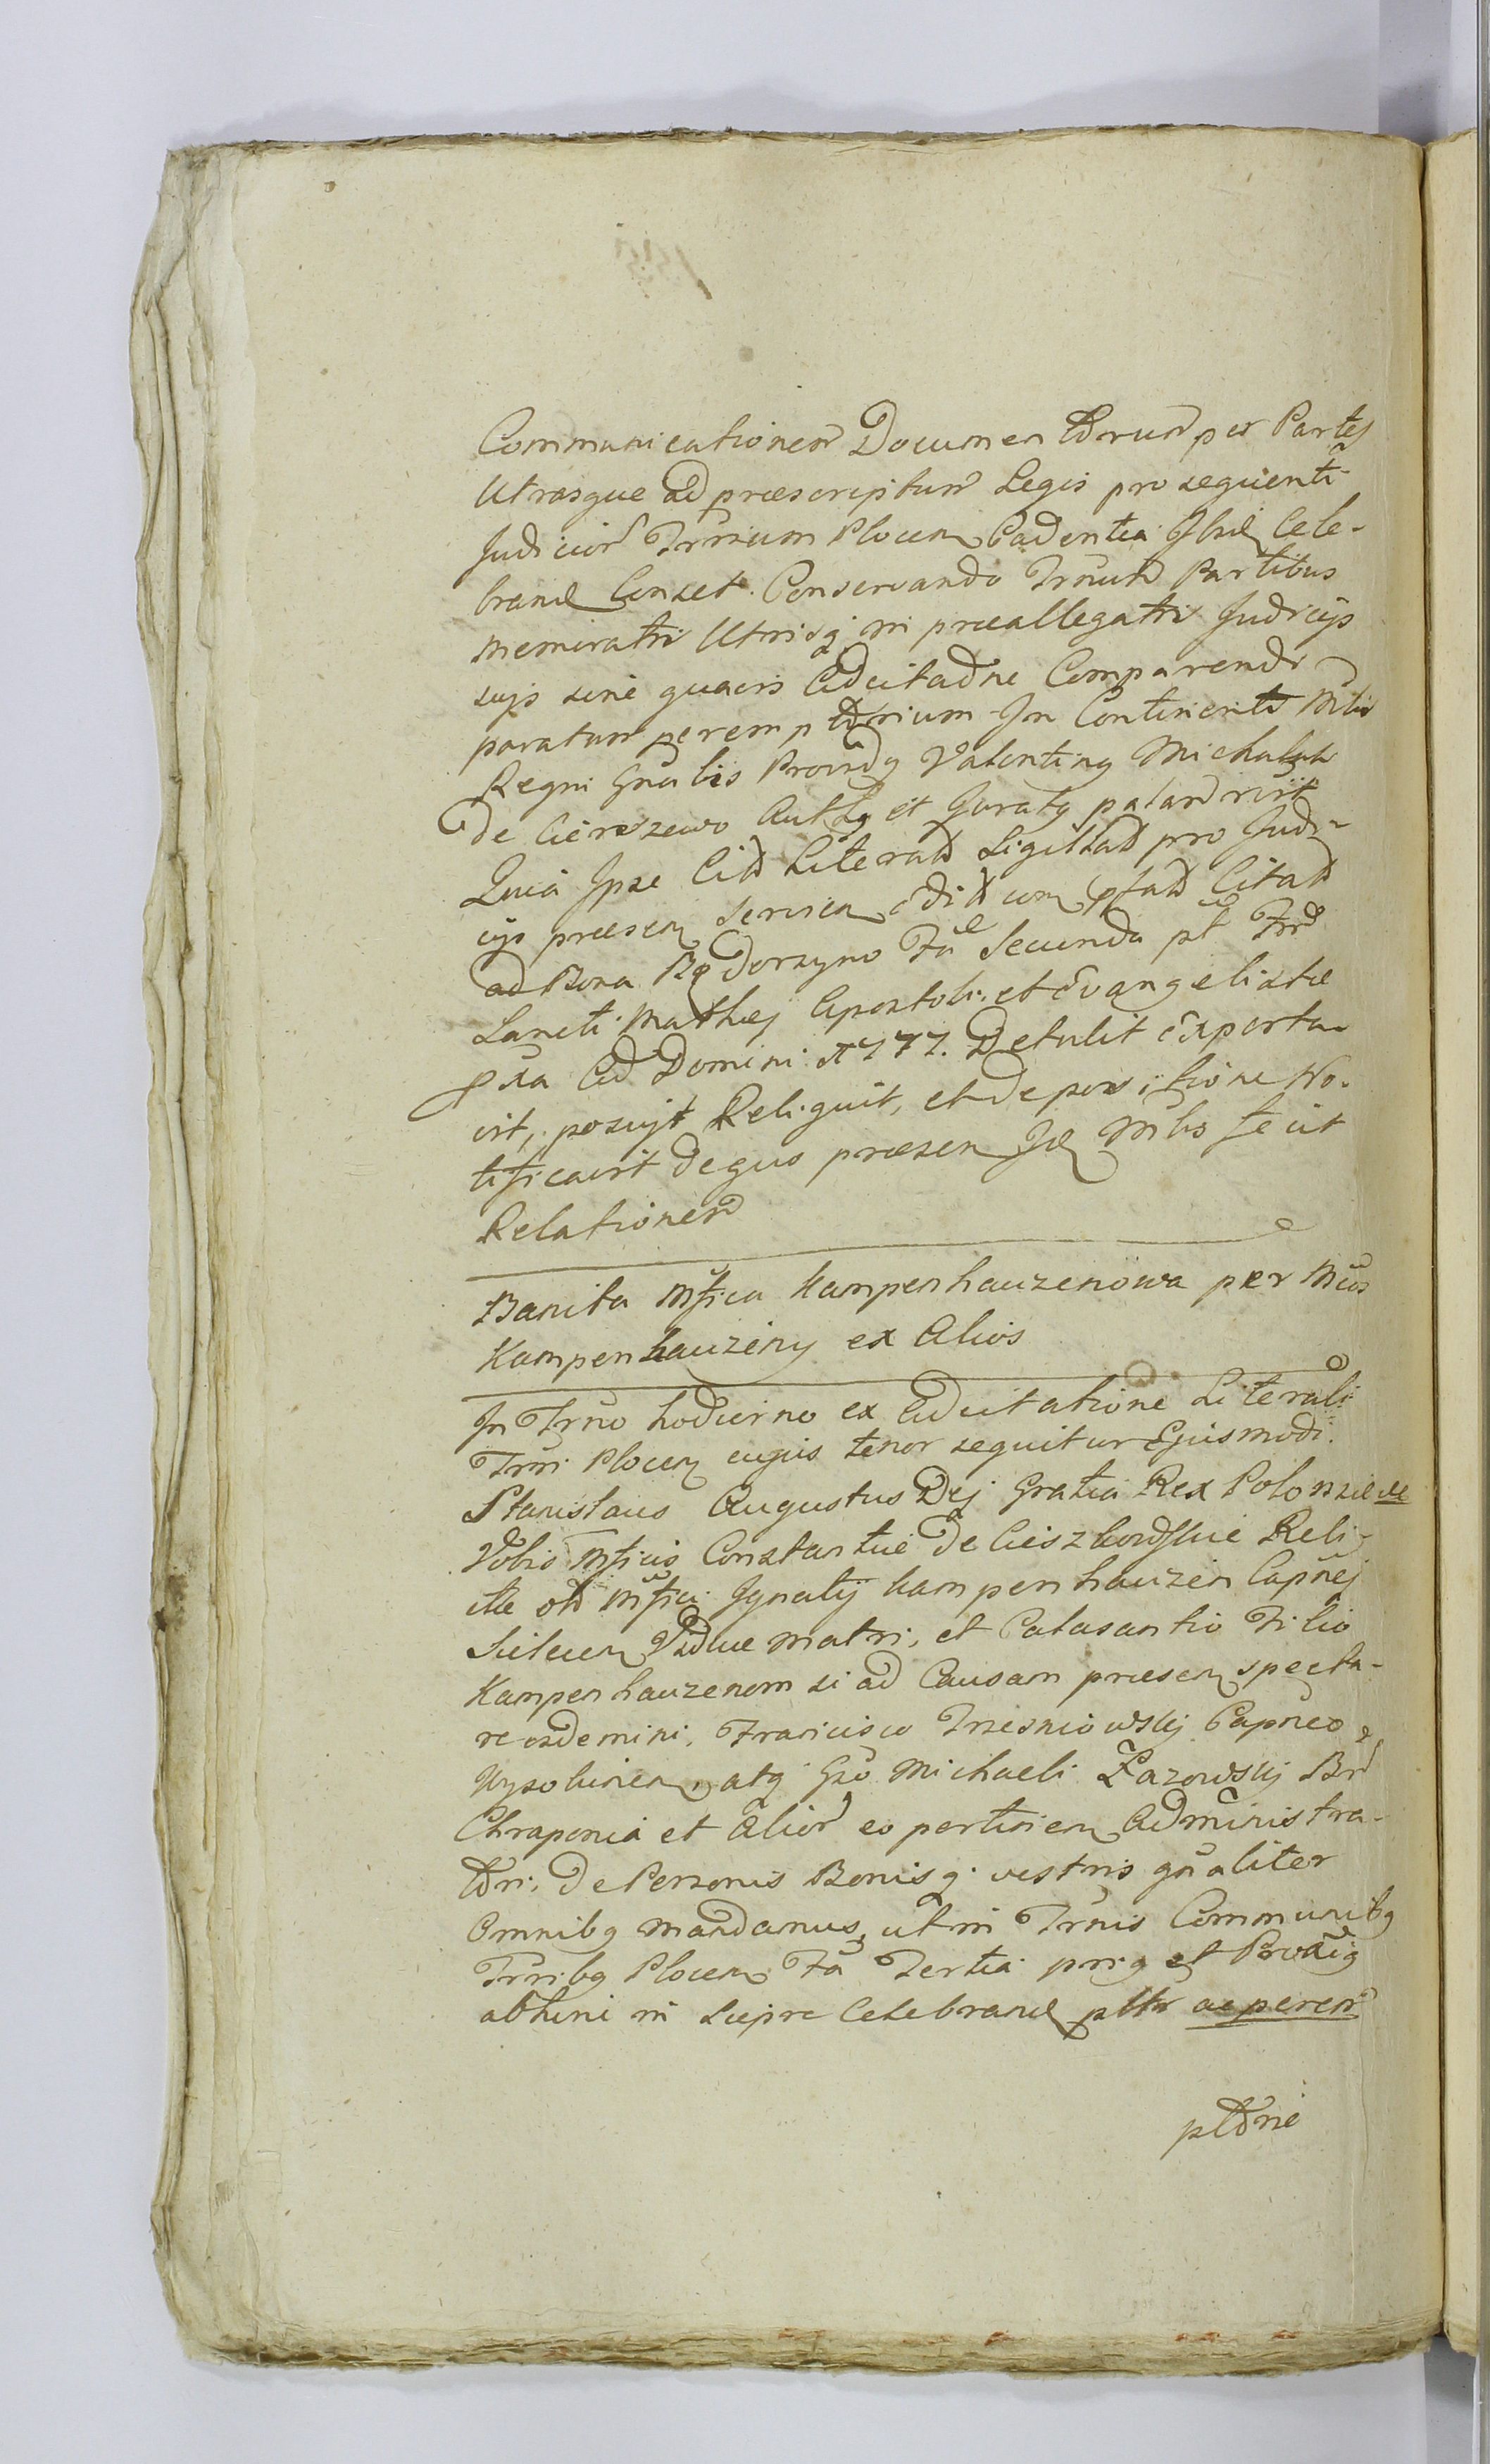 Communicationem Documentorum per Partes
Utrasque ad præscriptum Legis pro sequienti
Judicior Trrium Plocen Cadentia Ibid Cele-
brand Censet. Conservando Trnum Partibus
memoratis Utrisq in præallegatis Judicijs
suis sine quavis Adcitaone Comparendi
paratum peremptorium In Continenti Mtis
Regni Gnalis Providg Valenting Michalak
de Cierszewo Authg et Juratg palam rrit
Quia Ipse Citt Literatt Sigillatt pro Judi-
cijs præsen Servien editt cum pstatt Citatt
ad Bona Bądorzyno Fa Secunda pt Frd
Sancti Mathej Apostoli et Evangelistæ
pxa Ad Domini 1771. Detulit Exporta-
vit, posuit Reliquit, et de positione No-
tificavit de quo præsen Id Mtis fecit
Relationem
Banita Mfica Kampenhauzenowa per Mcos
Kampenhauzeny ex Alios
In Trno hodierno ex Adcitatione Literali
Trri Plocen cujus tenor sequitur Ejusmodi.
Stanislaus Augustus Dej Gratia Rex Poloniæ &c
Vobis Mficis Constantiæ de Cieszkowskie Reli-
ctæ olt Mfici Ignatij Kampenhauzen Capnej
Viduæ Matri, et Calasantio Filio
Kampenhauzenom si ad Causam præsen specta-
re credemini, Francisco Trzesniowskj Capneo
atq Gso Michaeli Łazowskj Br
Chraponia et Alior eo pertinen Administra-
tori, de Personis Bonisq vestris gnaliter
Omnibg mandamus, ut in Trnis Communibg
Trribg Plocen Fa Tertia prig et
abhinc in Sieprc Celebrand pltr ac perem
pltorie